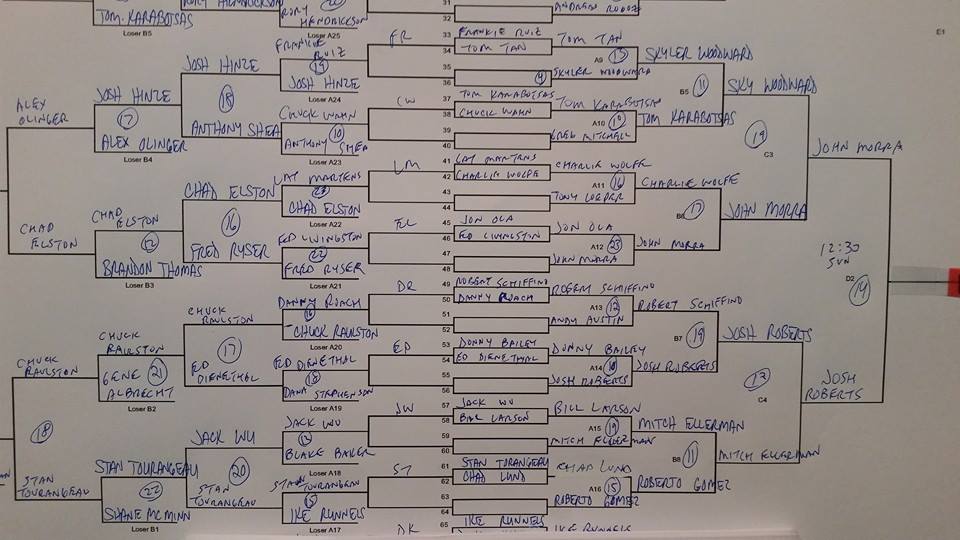 TOM KARABOTSAS
Loser B5
RORY HENDRICKSON
Loser A25
31
32
E1
FRANKIE RUIZ
19
JOSH HINZE
Loser A24
JOSH HINZE
18
ANTHONY SHEA
CHUCK WAHN
10
ANTHONY SHEA
Loser A23
JOSH HINZE
17
ALEX OLINGER
Loser B4
ALEX OLINGER
CHAD ELSTON
LAT MARTENS
23
CHAD ELSTON
Loser A22
CHAD ELSTON
16
FRED RYSER
ED LIVINGSTON
22
FRED RYSER
Loser A21
CHAD ELSTON
12
BRANDON THOMAS
Loser B3
DANNY ROACH
16
CHUCK RAULSTON
Loser A20
CHUCK RAULSTON
17
ED DIENETHAL
ED DIENETHAL
18
DANA STEPHENSON
Loser A19
CHUCK RAULSTON
21
GENE ALBRECHT
Loser B2
CHUCK RAULSTON
18
STAN TOURANGEAU
JACK WU
BLAKE BAKER
Loser A18
JACK WU
20
STAN TOURANGEAU
STAN TOURANGEAU
15
IKE RUNNELS
Loser A17
STAN TOURANGEAU
22
SHANE MCMINN
Loser B1
FR
CW
LM
EL
DR
ED
JW
ST
DK
33
FRANKIE RUIZ
34
TOM TAN
35
36
9
TOM TAN
A9
SKYLER WOODWARD
37
TOM KARABOTSAS
38
CHUCK WAHN
39
40
TOM KARABOTSAS
A10
GREG MITCHELL
41
LAT MARTENS
42
CHARLIE WOLFE
43
44
CHARLIE WOLFE
A11
16
45
JON OLA
46
ED LIVINGSTON
47
48
JON OLA
A12
23
JOHN MORRA
49
ROBERT SCHIFFINO
50
DANNY ROACH
51
52
ROBERT SCHIFFINO
A13
12
ANDY AUSTIN
53
DONNY BAILEY
54
ED DIENETHAL
55
56
DONNY BAILEY
A14
JOSH ROBERTS
57
JACK WU
58
BILL LARSON
59
60
BILL LARSON
A15
19
MITCH ELLERMAN
61
STAN TORANGEAU
62
CHAD LUND
63
64
CHAD LUND
A16
15
ROBERTO GOMEZ
65
IKE RUNNELS
IKE RUNNELS
SKYLER WOODWARD
B5
11
TOM KARABOTSAS
CHARLIE WOLFE
B6
17
JOHN MORRA
ROBERT SCHIFFINO
B7
19
JOSH ROBERTS
MITCH ELLERMAN
B8
11
ROBERTO GOMEZ
SKY WOODWARD
19
C3
JOHN MORRA
JOSH ROBERTS
C4
MITCH ELLERMAN
JOHN MORRA
12:30
SUN
D2
14
JOSH ROBERTS